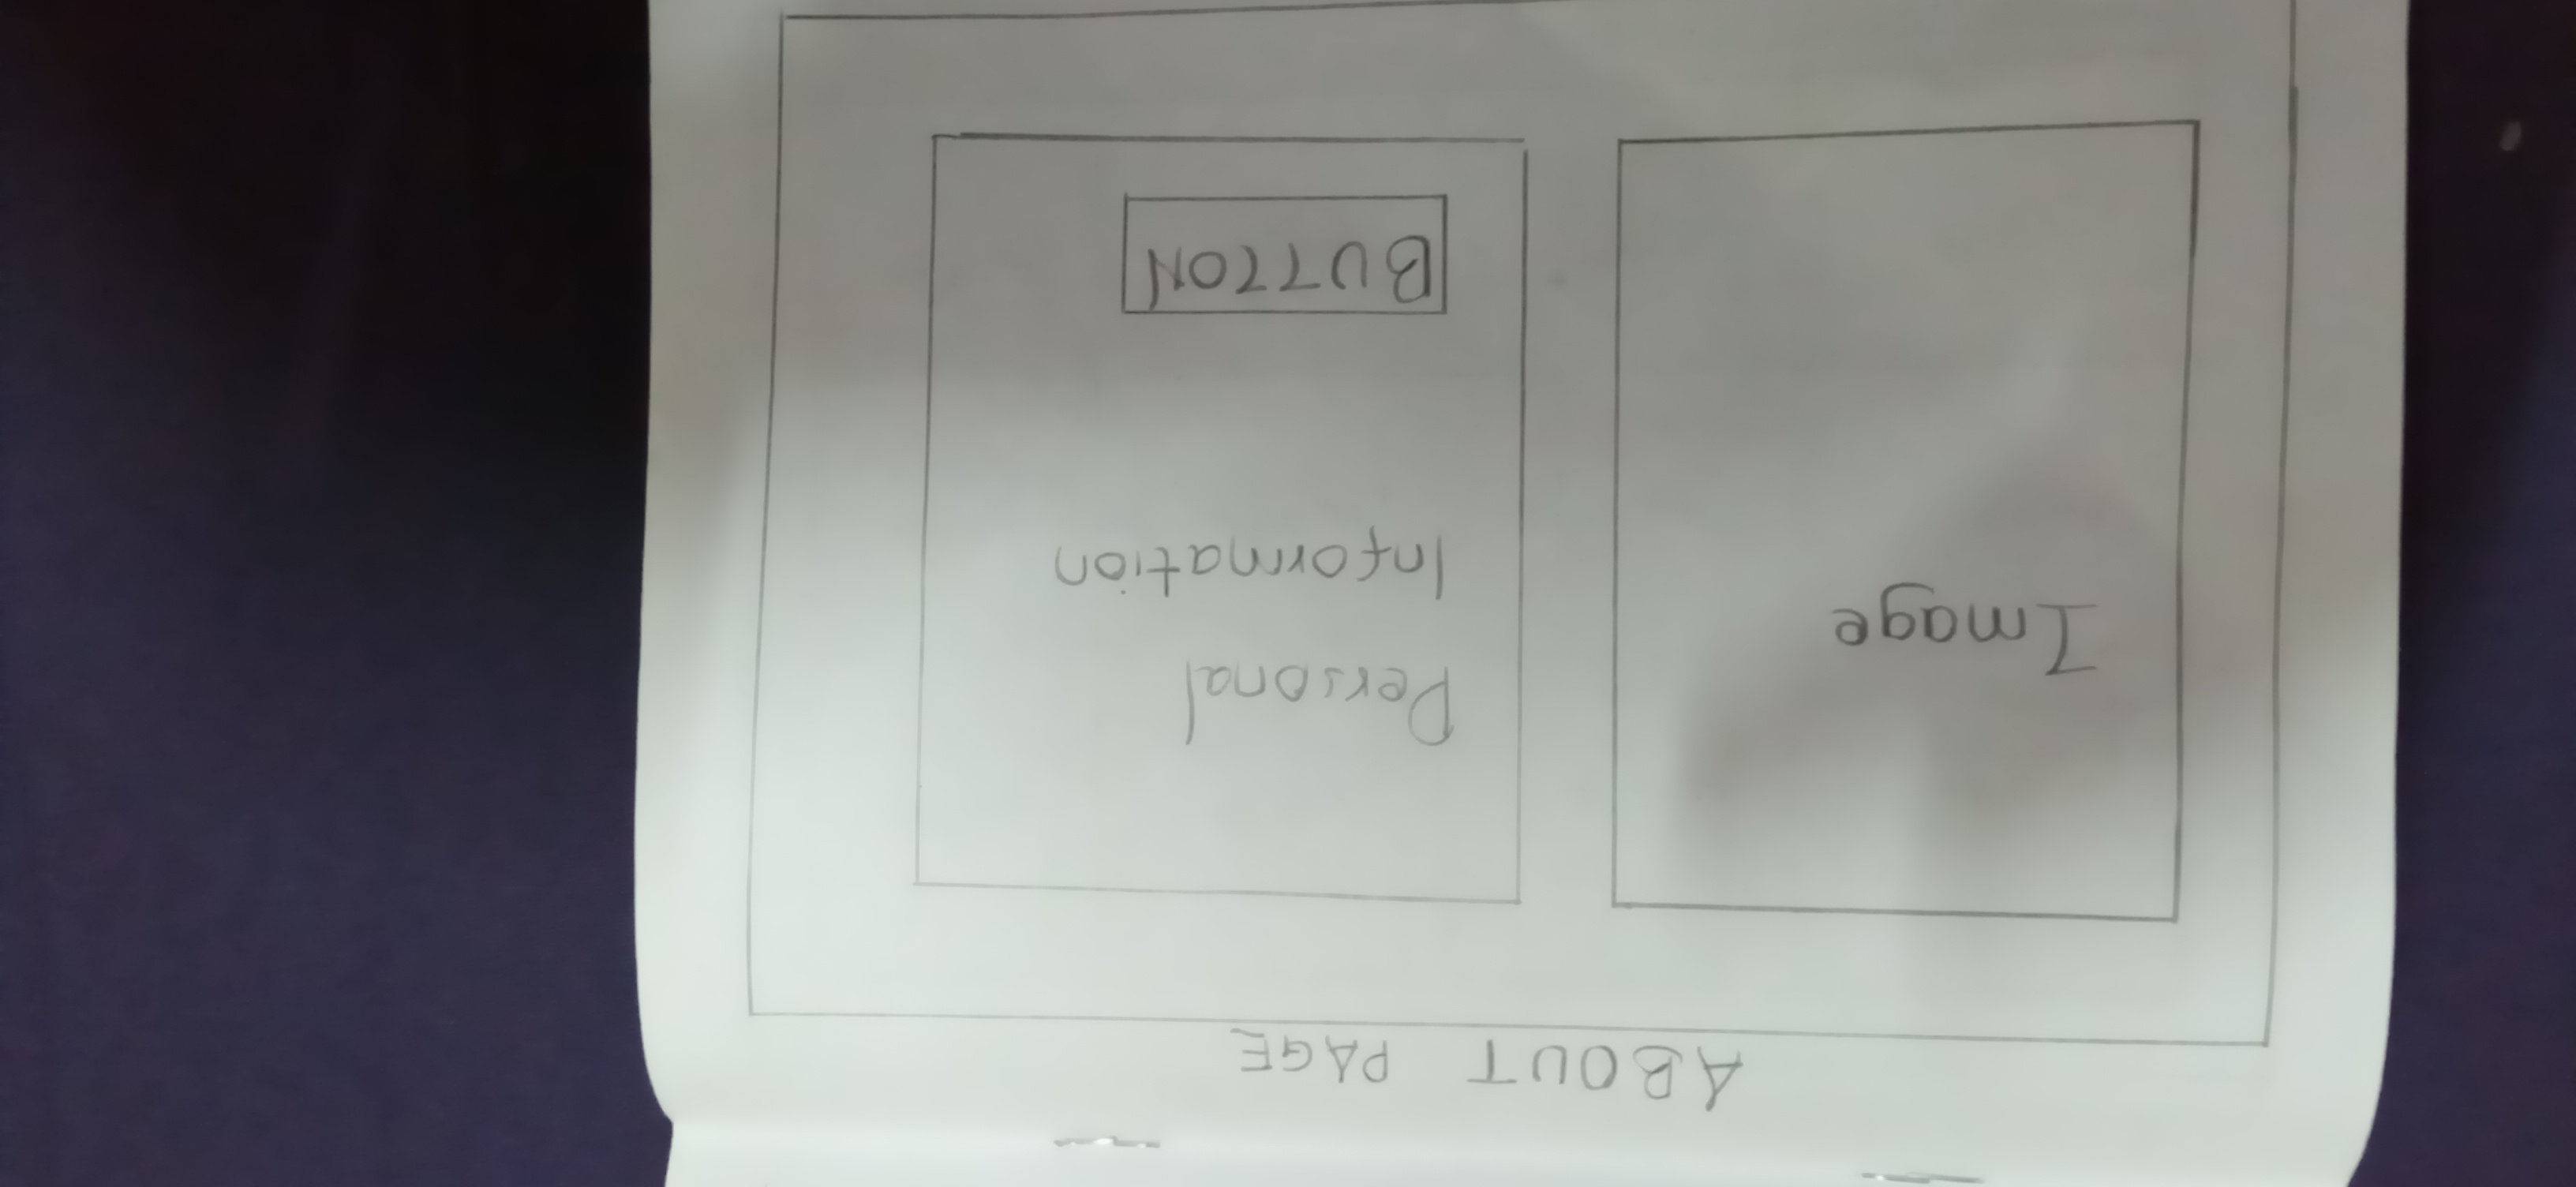 ABOUT PAGE
Image
Personal
Information
BUTTON